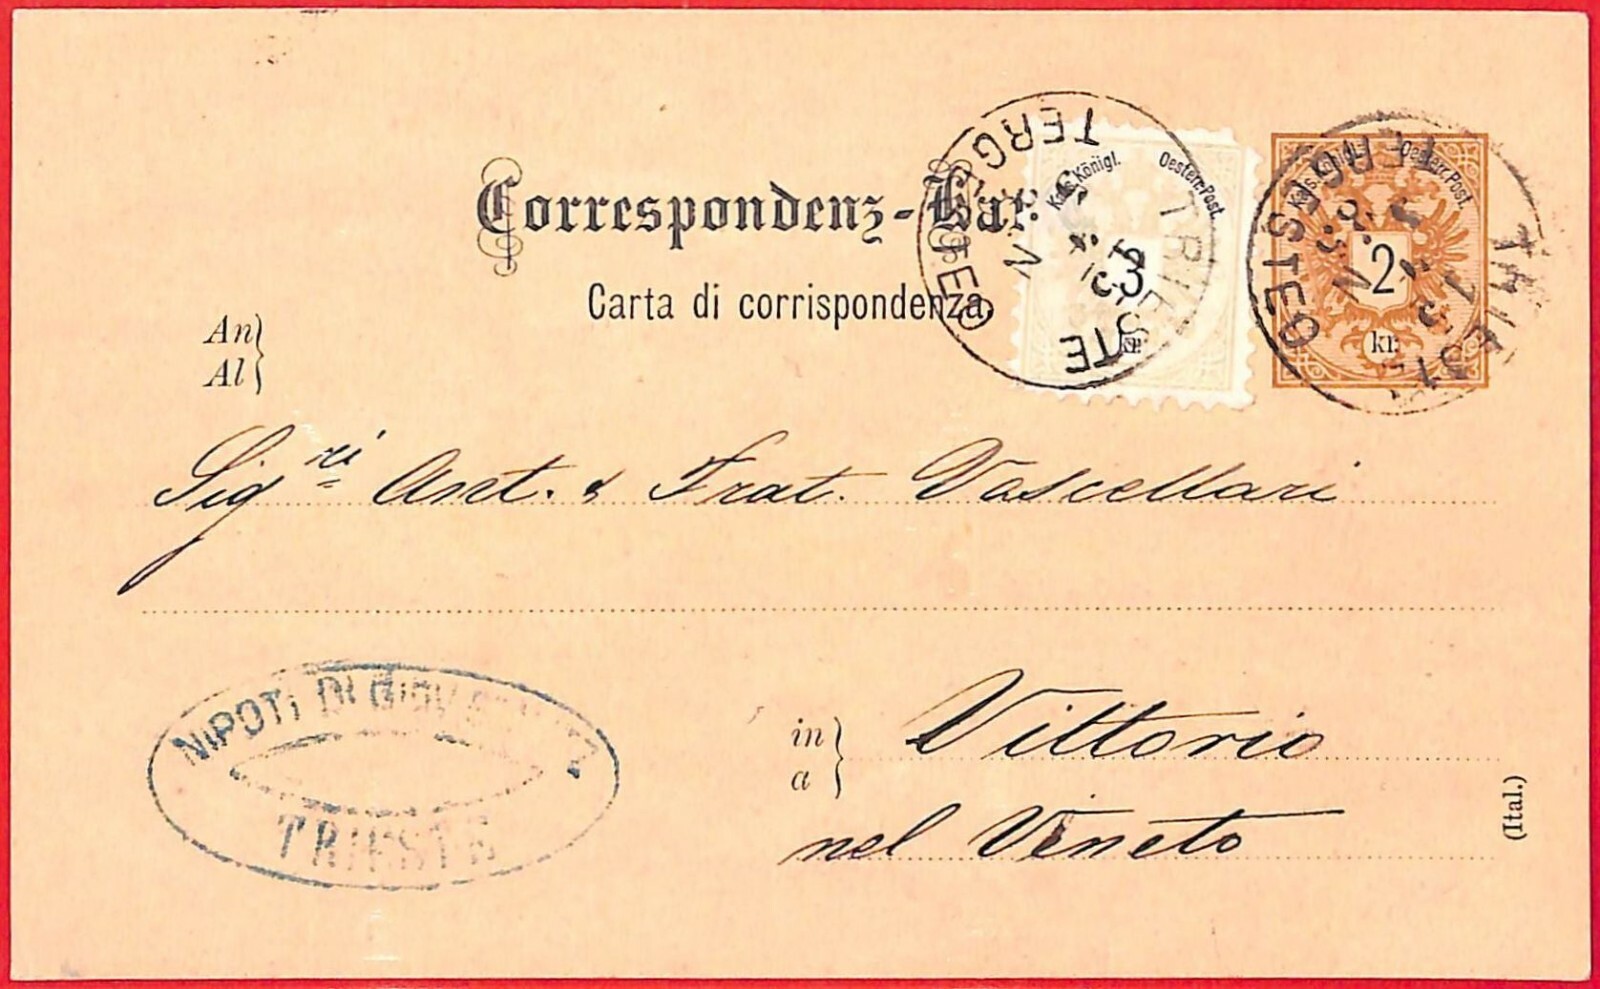 Correspondenz-Kar
Carta di corrispondenza.
Kais. Königl. Oesterr. Post.
3
kr.
Kais. Königl. Oesterr. Post.
2
kr.
TRIESTE
TERGESTEO
TRIESTE
TERGESTEO
An
Al
Sigri Ant. & Frat. Vascellari
NIPOTI DI
TRIESTE
in
a
Vittorio
nel Veneto
(Ital.)